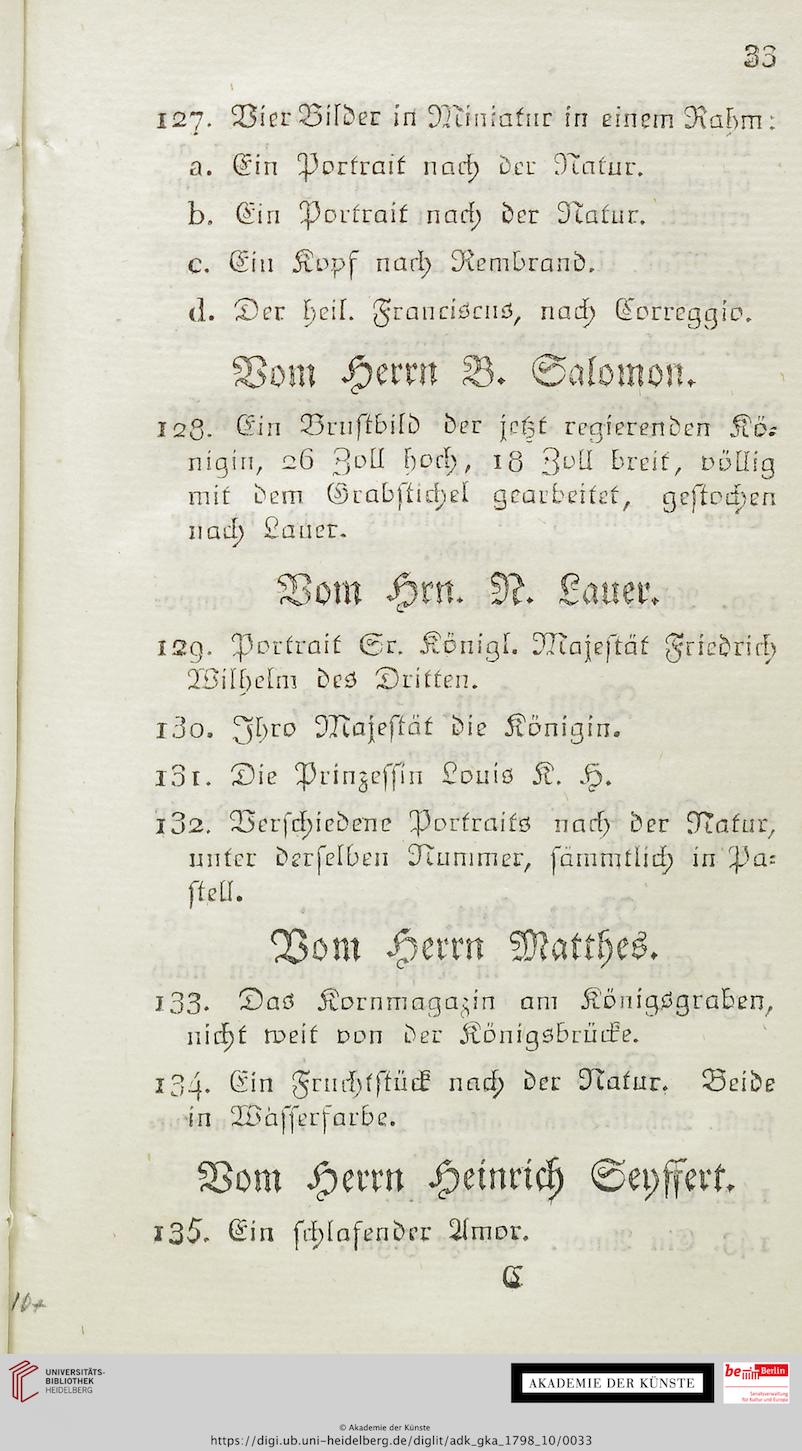 33
127. Vier Bilder in Miniatur in einem Rahm:
a. Ein Portrait nach der Natur.
b. Ein Portrait nach der Natur.
c. Ein Kopf nach Rembrand.
d. Der heil. Franciscus, nach Correggio.
Vom Herrn B. Salomon.
128. Ein Brustbild der jetzt regierenden Kö-
nigin, 26 Zoll hoch, 18 Zoll breit, völlig
mit dem Grabstichel gearbeitet, gestochen
nach Lauer.
Vom Hrn. N. Lauer.
129. Portrait Sr. Königl. Majestät Friedrich
Wilhelm des Dritten.
130. Ihro Majestät die Königin.
131. Die Prinzessin Louis K. H.
132. Verschiedene Portraits nach der Natur,
unter derselben Nummer, sämmtlich in Pa-
stell.
Vom Herrn Matthes.
133. Das Kornmagazin am Königsgraben,
nicht weit von der Königsbrücke.
134. Ein Fruchtstück nach der Natur. Beide
in Wasserfarbe.
Vom Herrn Heinrich Seyffert.
135. Ein schlafender Amor.
C
UNIVERSITÄTS-
BIBLIOTHEK
HEIDELBERG
AKADEMIE DER KÜNSTE
be Berlin
Senatsverwaltung
für Kultur und Europa
© Akademie der Künste
https://digi.ub.uni-heidelberg.de/diglit/adk_gka_1798_10/0033